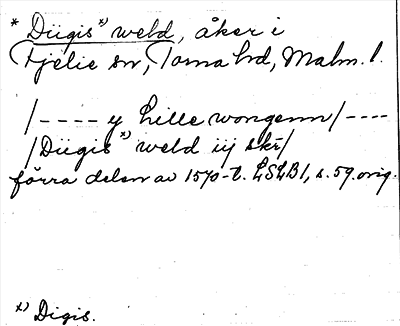 * Diigis x) weld, åker i
Fjelie sn, Torna hd, Malm. l.
/---- y Lille wongenn/----
/Diigis x) weld iij skr/
förra delen av 1570-t. LSLB1, s. 59. orig.
x) Digis.